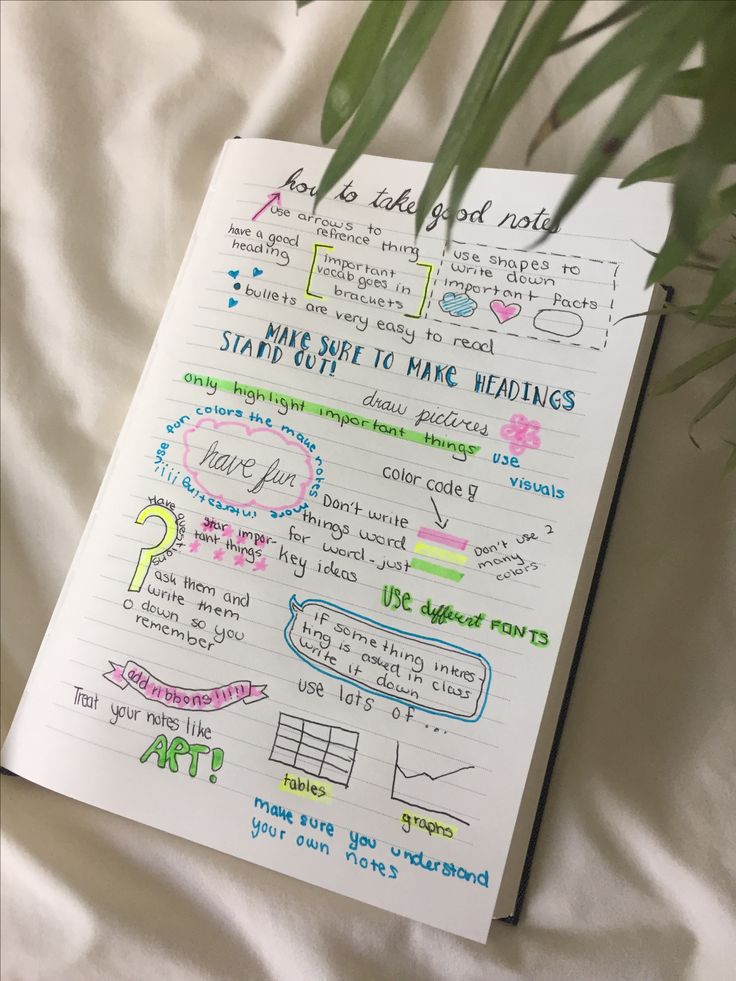 how to take good notes
use arrows to
refrence thing
have a good
heading
important
vocab goes in
brackets
use shapes to
write down
important facts
bullets are very easy to read
MAKE SURE TO MAKE HEADINGS
STAND OUT!
only highlight important things
draw pictures
use
visuals
use fun colors the make notes more interesting iiii
have fun
color code!
Have questions
?
star impor-
tant things
Don't write
things word
for word - just
key ideas
Don't use 2
many
colors
ask them and
write them
down so you
remember
USE different FONTS
if something interes-
ting is asked in class
write it down
add ribbons!!!!!
use lots of ...
Treat your notes like
ART!
tables
graphs
make sure you understand
your own notes